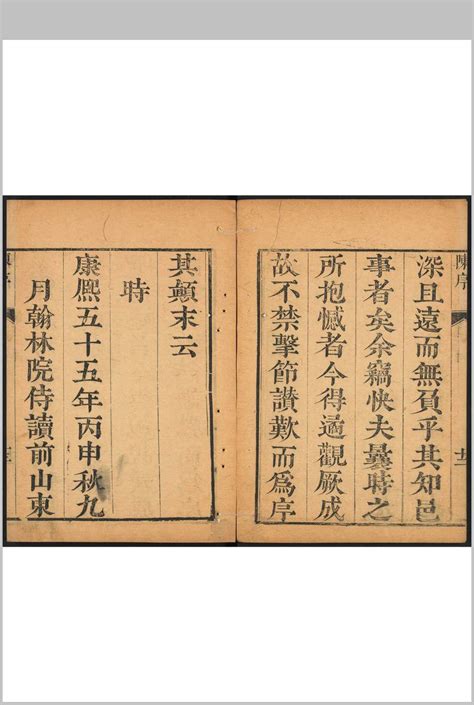 深且遠而無負乎其知邑
事者矣余竊快夫曩時之
所抱憾者今得遹觀厥成
故不禁擊節讃歎而為序
其顛末云
時
康熙五十五年丙申秋九
月翰林院侍讀前山東